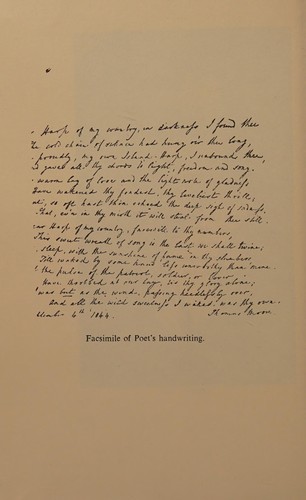 Harp of my country, in darkness I found thee
The cold chain of silence had hung o'er thee long,
proudly, my own Island Harp, I unbound thee
gave all thy chords to light, freedom and song.
warm lay of love and the light note of gladness
Have waken'd thy fondest, thy liveliest thrill;
so oft hast thou echoed the deep sigh of sadness,
That, ev'n in thy mirth it will steal from thee still.
Harp of my country, farewell to thy numbers,
This sweet wreath of song is the last we shall twine;
sleep, with the sunshine of fame on thy slumbers
Till waked by some hand less unworthy than mine.
the pulse of the patriot, soldier, or lover,
Have throbbed at our lay, 'tis thy glory alone;
was but as the wind, passing heedlessly over,
And all the wild sweetness I waked was thy own.
4th 1844. Thomas Moore
Facsimile of Poet's handwriting.